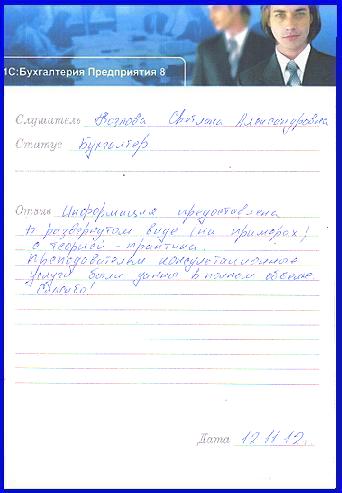 1С:Бухгалтерия Предприятия 8
Слушатель Светлана Александровна
Статус Бухгалтер
Отзыв Информация предоставлена
в развернутом виде (на примерах)
с теорией - практика.
Преподавателем консультационные
услуги были даны в полном объеме.
Спасибо!
Дата 12.11.12.